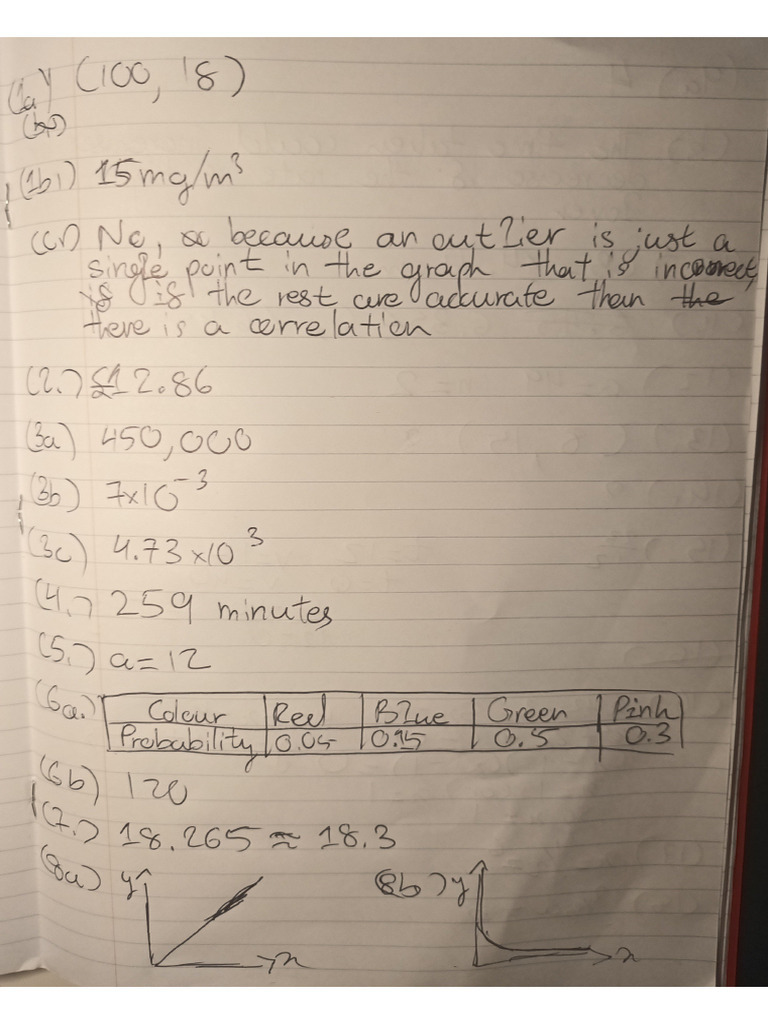 (1a) (100, 18)
(1b1) 15mg/m³
(c1) No, because an outlier is just a
single point in the graph that is incorrect,
is the rest are accurate than the
there is a correlation
(2.) £12.86
(3a) 450,000
(3b) 7x10⁻³
(3c) 4.73 x10³
(4.) 259 minutes
(5.) a=12
(6a.) Colour Red Blue Green Pink
Probability 0.05 0.15 0.5 0.3
(6b) 120
(7.) 18.265 ≈ 18.3
(8a) y x (8b.) y x